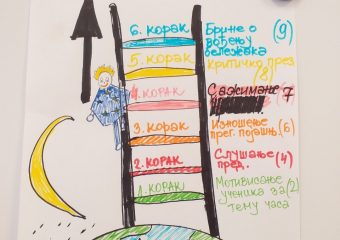 6. КОРАК Брине о вођењу бележака (9)
5. КОРАК критичко през (8)
4. КОРАК Сажимање 7
3. КОРАК Изношење прег. појашњ. (6)
2. КОРАК Слушање пред. (4)
1. КОРАК Мотивисање ученика за (2) тему часа